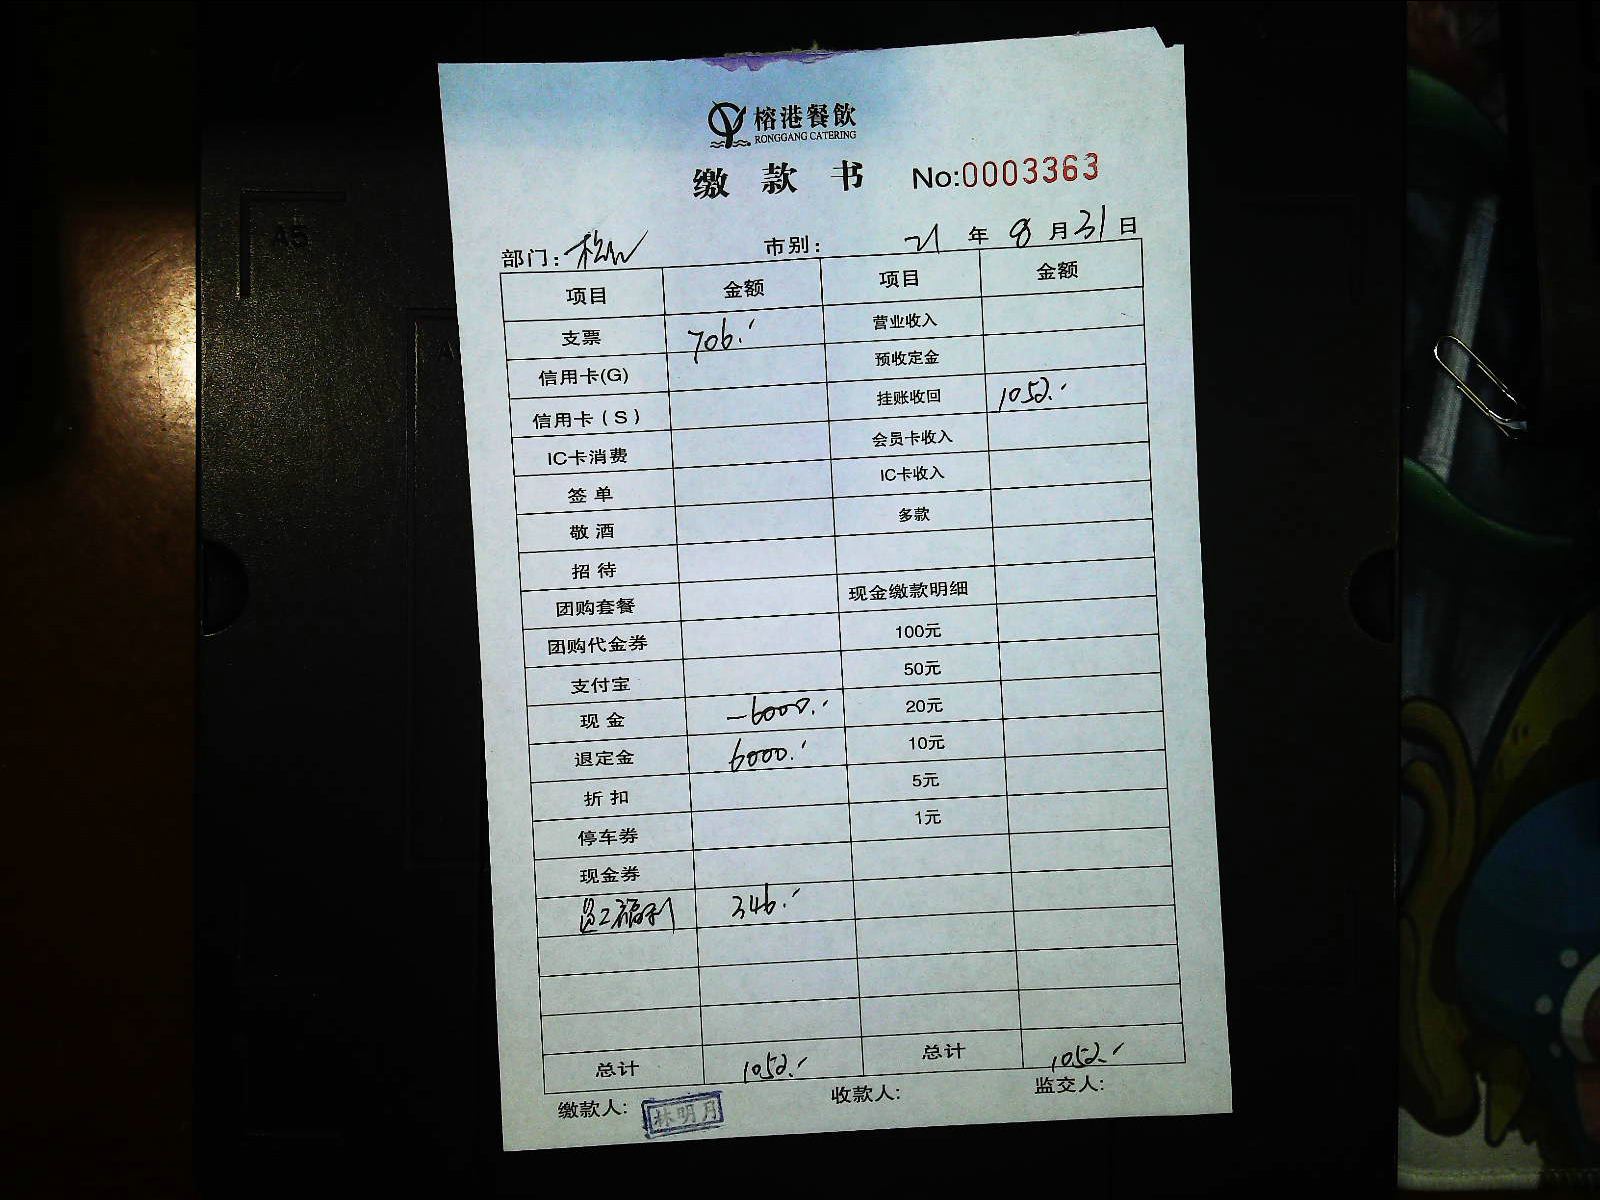 榕港餐飲
RONGGANG CATERING
缴款书 No:0003363
部门: 市别: 21 年 8 月 31 日
项目 金额 项目 金额
支票 706.- 营业收入
信用卡(G) 预收定金
信用卡(S) 挂账收回 1052.-
IC卡消费 会员卡收入
签单 IC卡收入
敬酒 多款
招待
团购套餐 现金缴款明细
团购代金券 100元
支付宝 50元
现金 -6000.- 20元
退定金 6000.- 10元
折扣 5元
停车券 1元
现金券
员工福利 346.-
总计 1052.- 总计 1052.-
缴款人: 林明月 收款人: 监交人:
A5